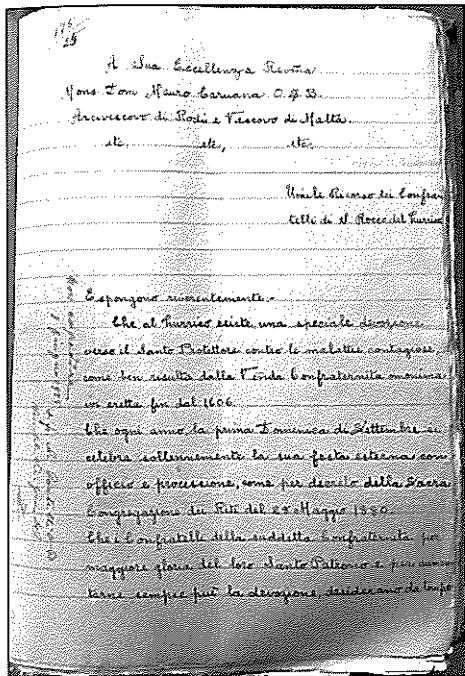 195/25
A Sua Eccellenza Revma
Mons. Dom Mauro Caruana O.S.B.
Arcivescovo di Rodi e Vescovo di Malta.
etc. etc, etc.
Umile Ricorso dei Confra-
telli di S. Rocco del Zurrico
Espongono riverentemente:-
Che al Zurrico esiste una speciale devozione
verso il Santo Protettore contro le malattie contagiose,
come ben risulta dalla Venda Confraternita omonima
ivi eretta fin dal 1606.
Che ogni anno, la prima Domenica di Settembre si
celebra sollennemente la sua festa esterna con
officio e processione, come per decreto della Sacra
Congregazione dei Riti del Maggio 1880.
Che i Confratelli della suddetta Confraternita per
maggiore gloria del loro Santo Patrono e per aumen
tarne sempre più la devozione, desiderano da tempo